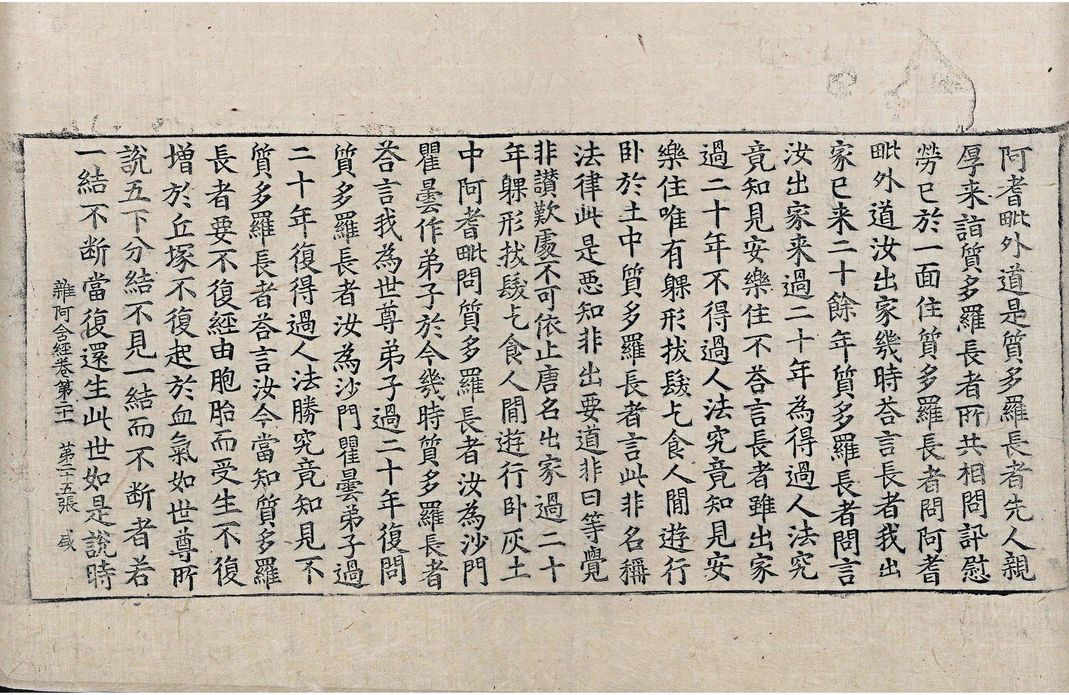 阿耆毗外道是質多羅長者先人親
厚来詣質多羅長者所共相問訊慰
勞已於一面住質多羅長者問阿耆
毗外道汝出家幾時荅言長者我出
家已来二十餘年質多羅長者問言
汝出家来過二十年為得過人法究
竟知見安樂住不荅言長者雖出家
過二十年不得過人法究竟知見安
樂住唯有躶形拔髮乞食人閒遊行
卧於土中質多羅長者言此非名稱
法律此是惡知非出要道非曰等覺
非讃歎處不可依止唐名出家過二十
年躶形拔髮乞食人閒遊行卧灰土
中阿耆毗問質多羅長者汝為沙門
瞿曇作弟子於今幾時質多羅長者
荅言我為世尊弟子過二十年復問
質多羅長者汝為沙門瞿曇弟子過
二十年復得過人法勝究竟知見不
質多羅長者荅言汝今當知質多羅
長者要不復經由胞胎而受生不復
增於丘塚不復起於血氣如世尊所
說五下分結不見一結而不断者若
一結不断當復還生此世如是說時
雜阿含經卷第二十一 第二十五張 盛